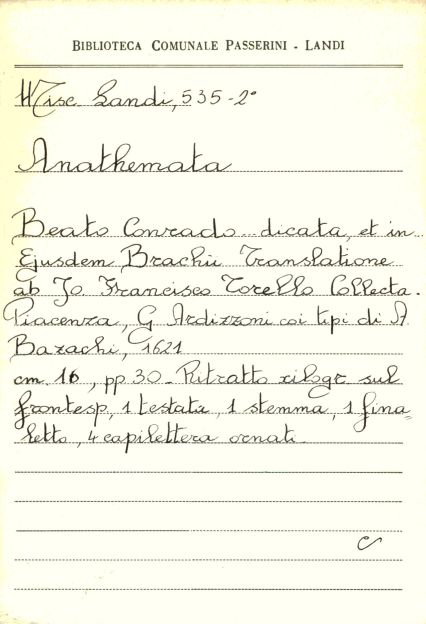 BIBLIOTECA COMUNALE PASSERINI - LANDI
Misc Landi, 535-2°
Anathemata
Beato Conrado... dicata, et in
Ejusdem Brachii Translatione
ab Jo Francisco Torello Collecta.
Piacenza, G Ardizzoni coi tipi di A
Bazachi, 1621
cm. 16, pp 30 - Ritratto xilogr sul
frontesp, 1 testata, 1 stemma, 1 fina=
letto, 4 capilettera ornati.
c